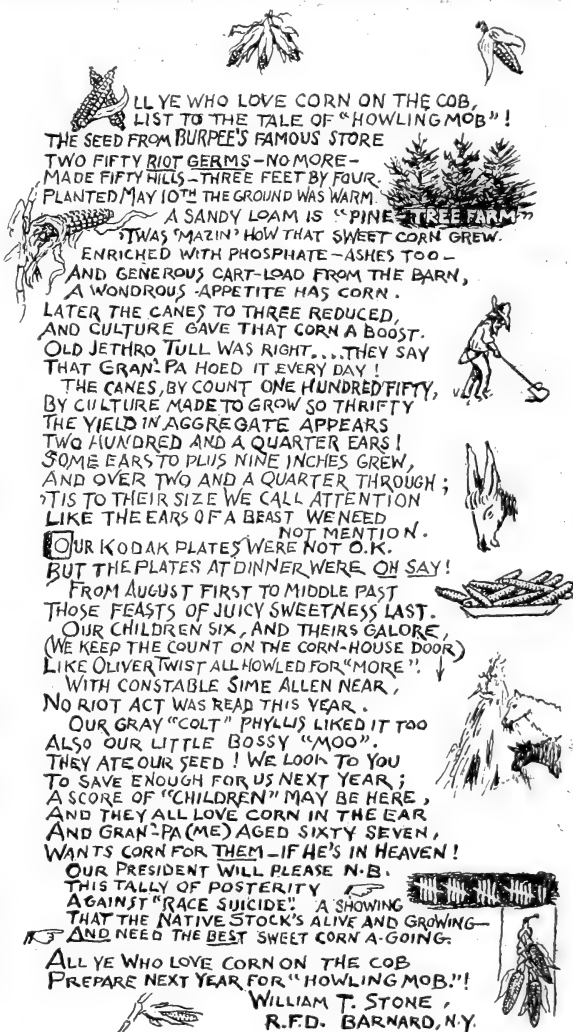 ALL YE WHO LOVE CORN ON THE COB,
LIST TO THE TALE OF "HOWLING MOB"!
THE SEED FROM BURPEE'S FAMOUS STORE
TWO FIFTY RIOT GERMS - NO MORE -
MADE FIFTY HILLS - THREE FEET BY FOUR.
PLANTED MAY 10TH THE GROUND WAS WARM.
A SANDY LOAM IS "PINE-TREE FARM"
'TWAS 'MAZIN' HOW THAT SWEET CORN GREW.
ENRICHED WITH PHOSPHATE - ASHES TOO -
AND GENEROUS CART-LOAD FROM THE BARN,
A WONDROUS APPETITE HAS CORN.
LATER THE CANES TO THREE REDUCED,
AND CULTURE GAVE THAT CORN A BOOST.
OLD JETHRO TULL WAS RIGHT....THEY SAY
THAT GRAN'-PA HOED IT EVERY DAY!
THE CANES, BY COUNT ONE HUNDRED FIFTY,
BY CULTURE MADE TO GROW SO THRIFTY
THE YIELD IN AGGREGATE APPEARS
TWO HUNDRED AND A QUARTER EARS!
SOME EARS TO PLUS NINE INCHES GREW,
AND OVER TWO AND A QUARTER THROUGH;
'TIS TO THEIR SIZE WE CALL ATTENTION
LIKE THE EARS OF A BEAST WE NEED
NOT MENTION.
OUR KODAK PLATES WERE NOT O.K.
BUT THE PLATES AT DINNER WERE OH SAY!
FROM AUGUST FIRST TO MIDDLE PAST
THOSE FEASTS OF JUICY SWEETNESS LAST.
OUR CHILDREN SIX, AND THEIRS GALORE,
(WE KEEP THE COUNT ON THE CORN-HOUSE DOOR)
LIKE OLIVER TWIST ALL HOWLED FOR "MORE"!
WITH CONSTABLE SIME ALLEN NEAR,
NO RIOT ACT WAS READ THIS YEAR.
OUR GRAY "COLT" PHYLLIS LIKED IT TOO
ALSO OUR LITTLE BOSSY "MOO".
THEY ATE OUR SEED! WE LOOK TO YOU
TO SAVE ENOUGH FOR US NEXT YEAR;
A SCORE OF "CHILDREN" MAY BE HERE,
AND THEY ALL LOVE CORN IN THE EAR
AND GRAN'-PA (ME) AGED SIXTY SEVEN,
WANTS CORN FOR THEM - IF HE'S IN HEAVEN!
OUR PRESIDENT WILL PLEASE N.B.
THIS TALLY OF POSTERITY
AGAINST "RACE SUICIDE". A SHOWING
THAT THE NATIVE STOCK'S ALIVE AND GROWING—
AND NEED THE BEST SWEET CORN A-GOING.
ALL YE WHO LOVE CORN ON THE COB
PREPARE NEXT YEAR FOR "HOWLING MOB."!
WILLIAM T. STONE,
R.F.D. BARNARD, N.Y.